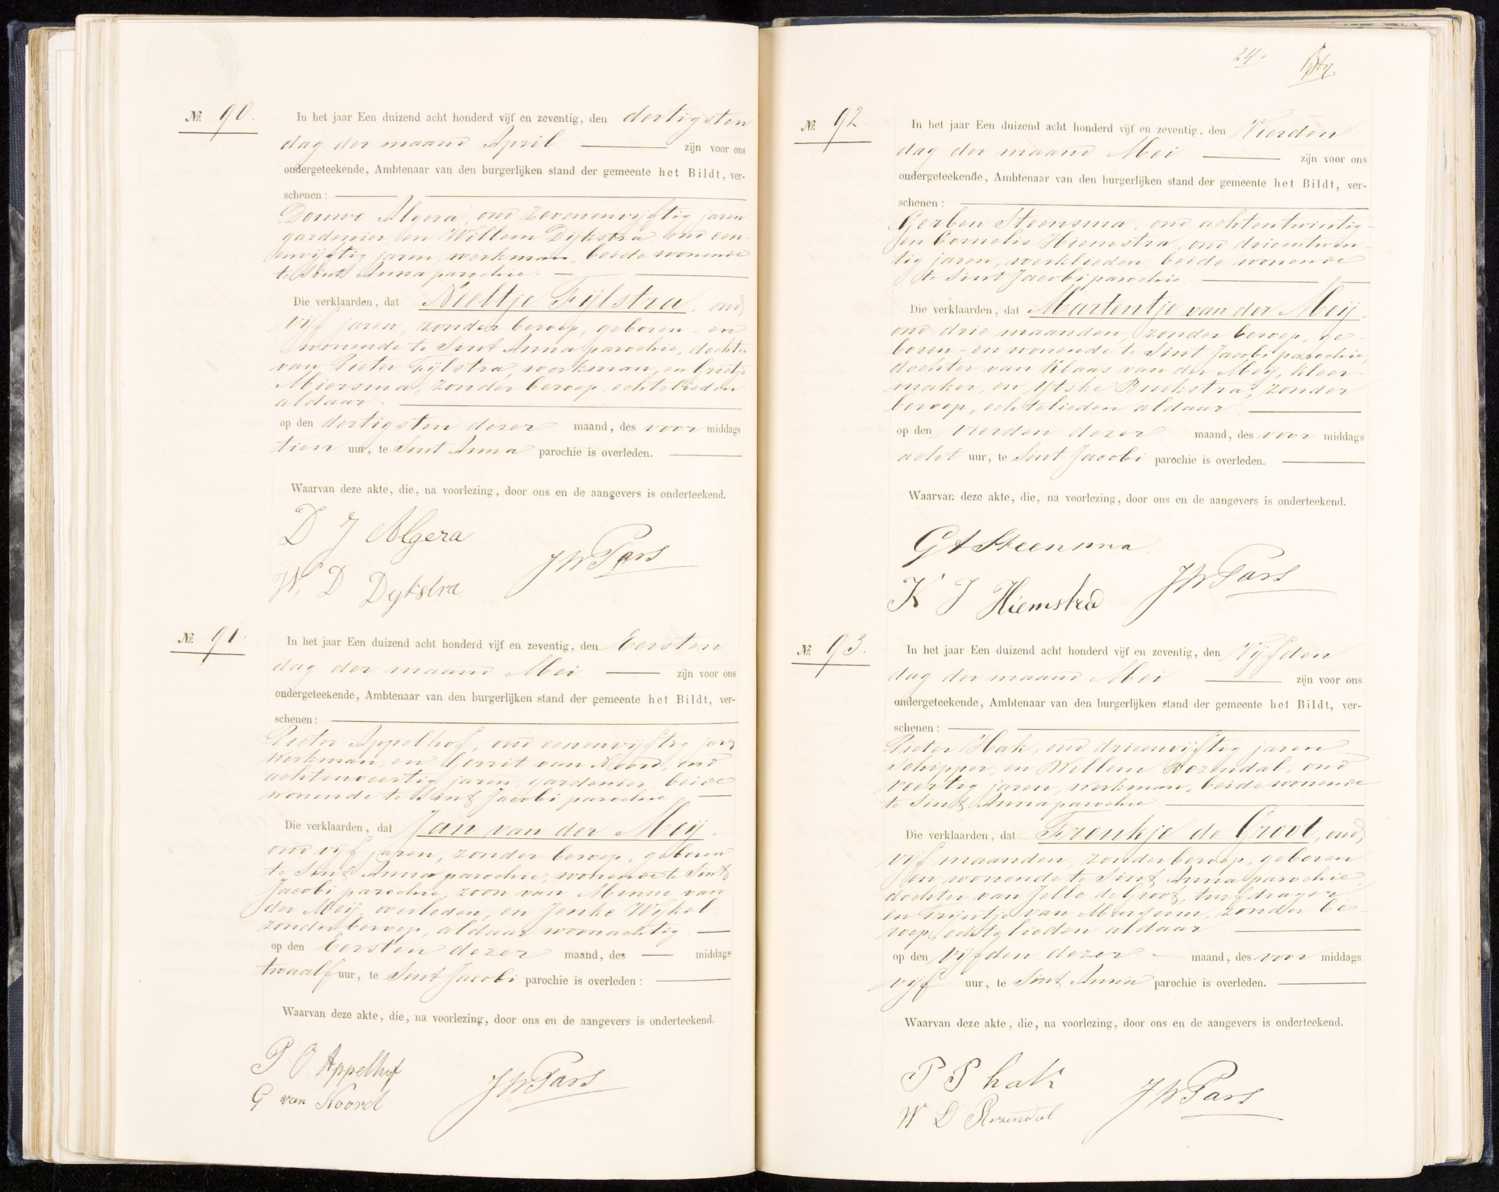 № 90.
In het jaar Een duizend acht honderd vijf en zeventig, den dertigsten
dag der maand April zijn voor ons
ondergeteekende, Ambtenaar van den burgerlijken stand der gemeente het Bildt, ver-
schenen:
Douwe Algera, oud zevenenvijftig jaren
gardenier en Willem Dijkstra oud een
envijftig jaren, werkman, beide wonende
te Sint Anna parochie
Die verklaarden, dat Neeltje Fijlstra, oud
vijf jaren, zonder beroep, geboren en
wonende te Sint Anna parochie, dochter
van Pieter Fijlstra, werkman, en
Miersma, zonder beroep, echtelieden
aldaar.
op den dertigsten dezer maand, des voor middags
tien uur, te Sint Anna parochie is overleden.
Waarvan deze akte, die, na voorlezing, door ons en de aangevers is onderteekend.
D J Algera
W. D Dykstra
JWPars
№ 91.
In het jaar Een duizend acht honderd vijf en zeventig, den Eersten
dag der maand Mei zijn voor ons
ondergeteekende, Ambtenaar van den burgerlijken stand der gemeente het Bildt, ver-
schenen:
Pieter Appelhof, oud eenenvijftig jaren
werkman en Gerrit van Noord, oud
achtenveertig jaren, gardenier beide
wonende te Sint Jacobi parochie
Die verklaarden, dat Jan van der Meij.
oud vijf jaren, zonder beroep, geboren
te Sint Anna parochie, wonende te Sint
Jacobi parochie, zoon van Minne van
der Meij, overleden, en Jenke Wijkel
zonder beroep, aldaar woonachtig
op den Eersten dezer maand, des middags
twaalf uur, te Sint Jacobi parochie is overleden:
Waarvan deze akte, die, na voorlezing, door ons en de aangevers is onderteekend.
P O Appelhof
G van Noord
JWPars
24.
№ 92
In het jaar Een duizend acht honderd vijf en zeventig, den Vierden
dag der maand Mei zijn voor ons
ondergeteekende, Ambtenaar van den burgerlijken stand der gemeente het Bildt, ver-
schenen:
Gerben Steensma, oud achtentwintig
en Cornelis Hiemstra, oud drieentwin-
tig jaren, werklieden beide wonende
te Sint Jacobi parochie
Die verklaarden, dat Martentje van der Meij.
oud drie maanden, zonder beroep, ge-
boren en wonende te Sint Jacobi parochie,
dochter van Klaas van der Meij, kleer-
maker, en Ytske Boekstra, zonder
beroep, echtelieden aldaar
op den vierden dezer maand, des voor middags
acht uur, te Sint Jacobi parochie is overleden.
Waarvan deze akte, die, na voorlezing, door ons en de aangevers is onderteekend.
G A Steensma
K J Hiemstra
JWPars
№ 93.
In het jaar Een duizend acht honderd vijf en zeventig, den Vijfden
dag der maand Mei zijn voor ons
ondergeteekende, Ambtenaar van den burgerlijken stand der gemeente het Bildt, ver-
schenen:
Pieter Hak, oud drieenvijftig jaren
Schipper, en Willem Rozendal, oud
veertig jaren, werkman, beide wonende
te Sint Anna parochie
Die verklaarden, dat Froukje de Groot, oud
vijf maanden, zonder beroep, geboren
en wonende te Sint Anna parochie
dochter van Jelle de Groot, turfdrager
en Trijntje van zonder be-
roep, echtelieden aldaar
op den Vijfden dezer maand, des voor middags
vijf uur, te Sint Anna parochie is overleden.
Waarvan deze akte, die, na voorlezing, door ons en de aangevers is onderteekend.
P P hak
W D Rozendal
JWPars